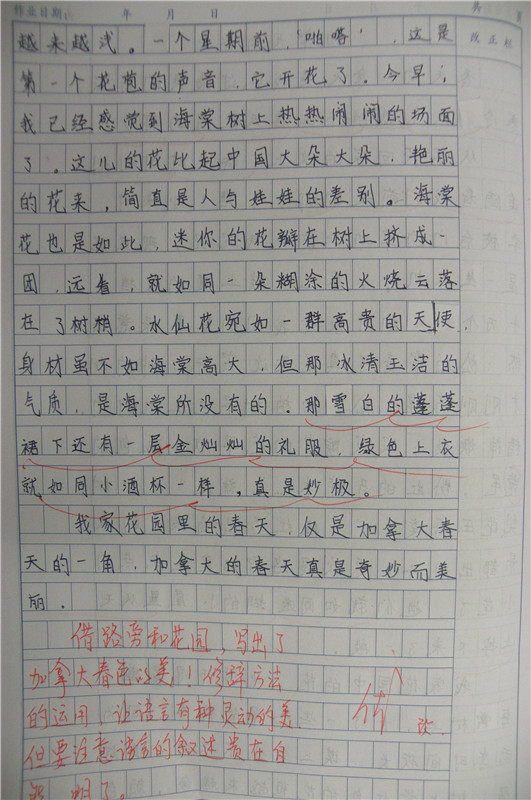 作业日期: 年 月 日 共 页
越来越浅。一个星期前,“啪嗒”,这是
改正栏
第一个花苞的声音,它开花了。今早,
我已经感觉到海棠树上热热闹闹的场面
了。这儿的花比起中国大朵大朵、艳丽
的花来,简直是人与娃娃的差别。海棠
花也是如此,迷你的花瓣在树上挤成一
团,远看,就如同一朵糊涂的火烧云落
在了树梢。水仙花宛如一群高贵的天使,
身材虽不如海棠高大,但那冰清玉洁的
气质,是海棠所没有的。那雪白的蓬蓬
裙下还有一层金灿灿的礼服,绿色上衣
就如同小酒杯一样,真是妙极。
我家花园里的春天,仅是加拿大春
天的一角,加拿大的春天真是奇妙而美
丽。
借路旁和花园,写出了
加拿大春色的美!修辞方法
的运用,让语言有种灵动的美
但要注意语言的叙述贵在自
明了。